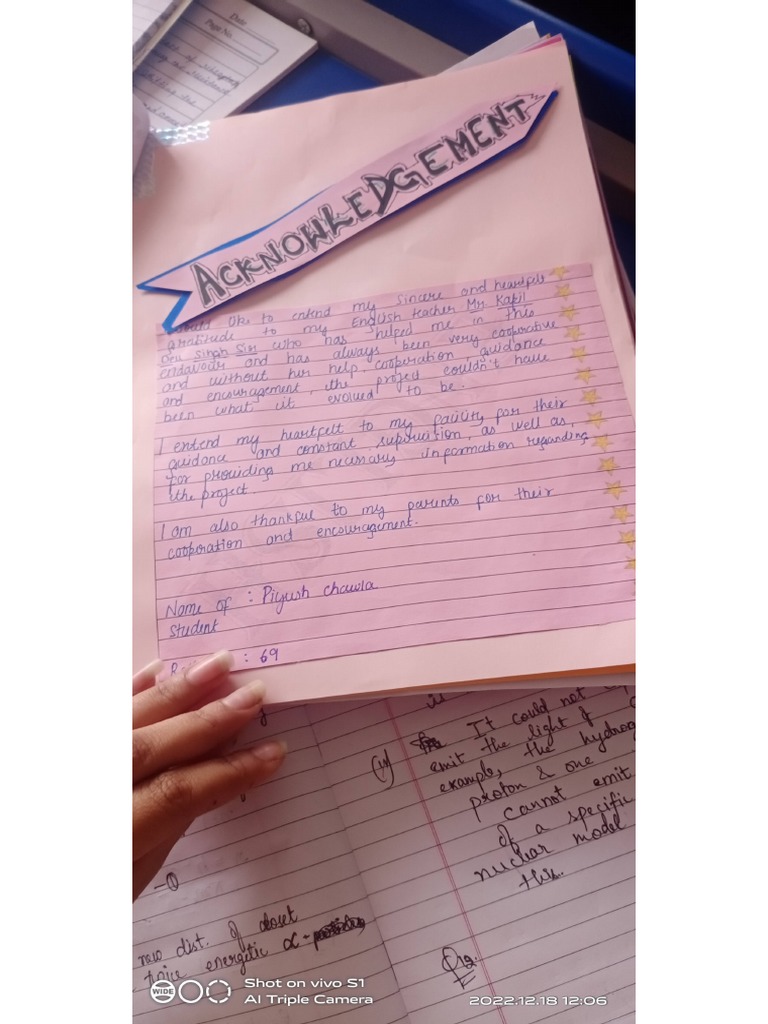 Date
Page No.
ACKNOWLEDGEMENT
would like to entend my sincere and heartfelt
gratitude to my English teacher Mr. Kapil
Dev Singh Sir who has helped me in this
endavour and has always been very cooperative
and without her help, cooperation, guidance
and encouragement, the project couldn't have
been what it evolued to be.
I entend my heartfelt to my faculty for their
guidance and constant supervision, as well as,
for providing me necessary information regarding
the project.
I am also thankful to my parents for their
cooperation and encouragement.
Name of : Piyush chawla
Student
: 69
(iv) It could not
emit the light of
example, the hydrog
proton & one
cannot emit
of a specific
nuclear model
this.
-①
new dist. of closet
twice energetic α-
Q12.
WIDE
Shot on vivo S1
AI Triple Camera
2022.12.18 12:06